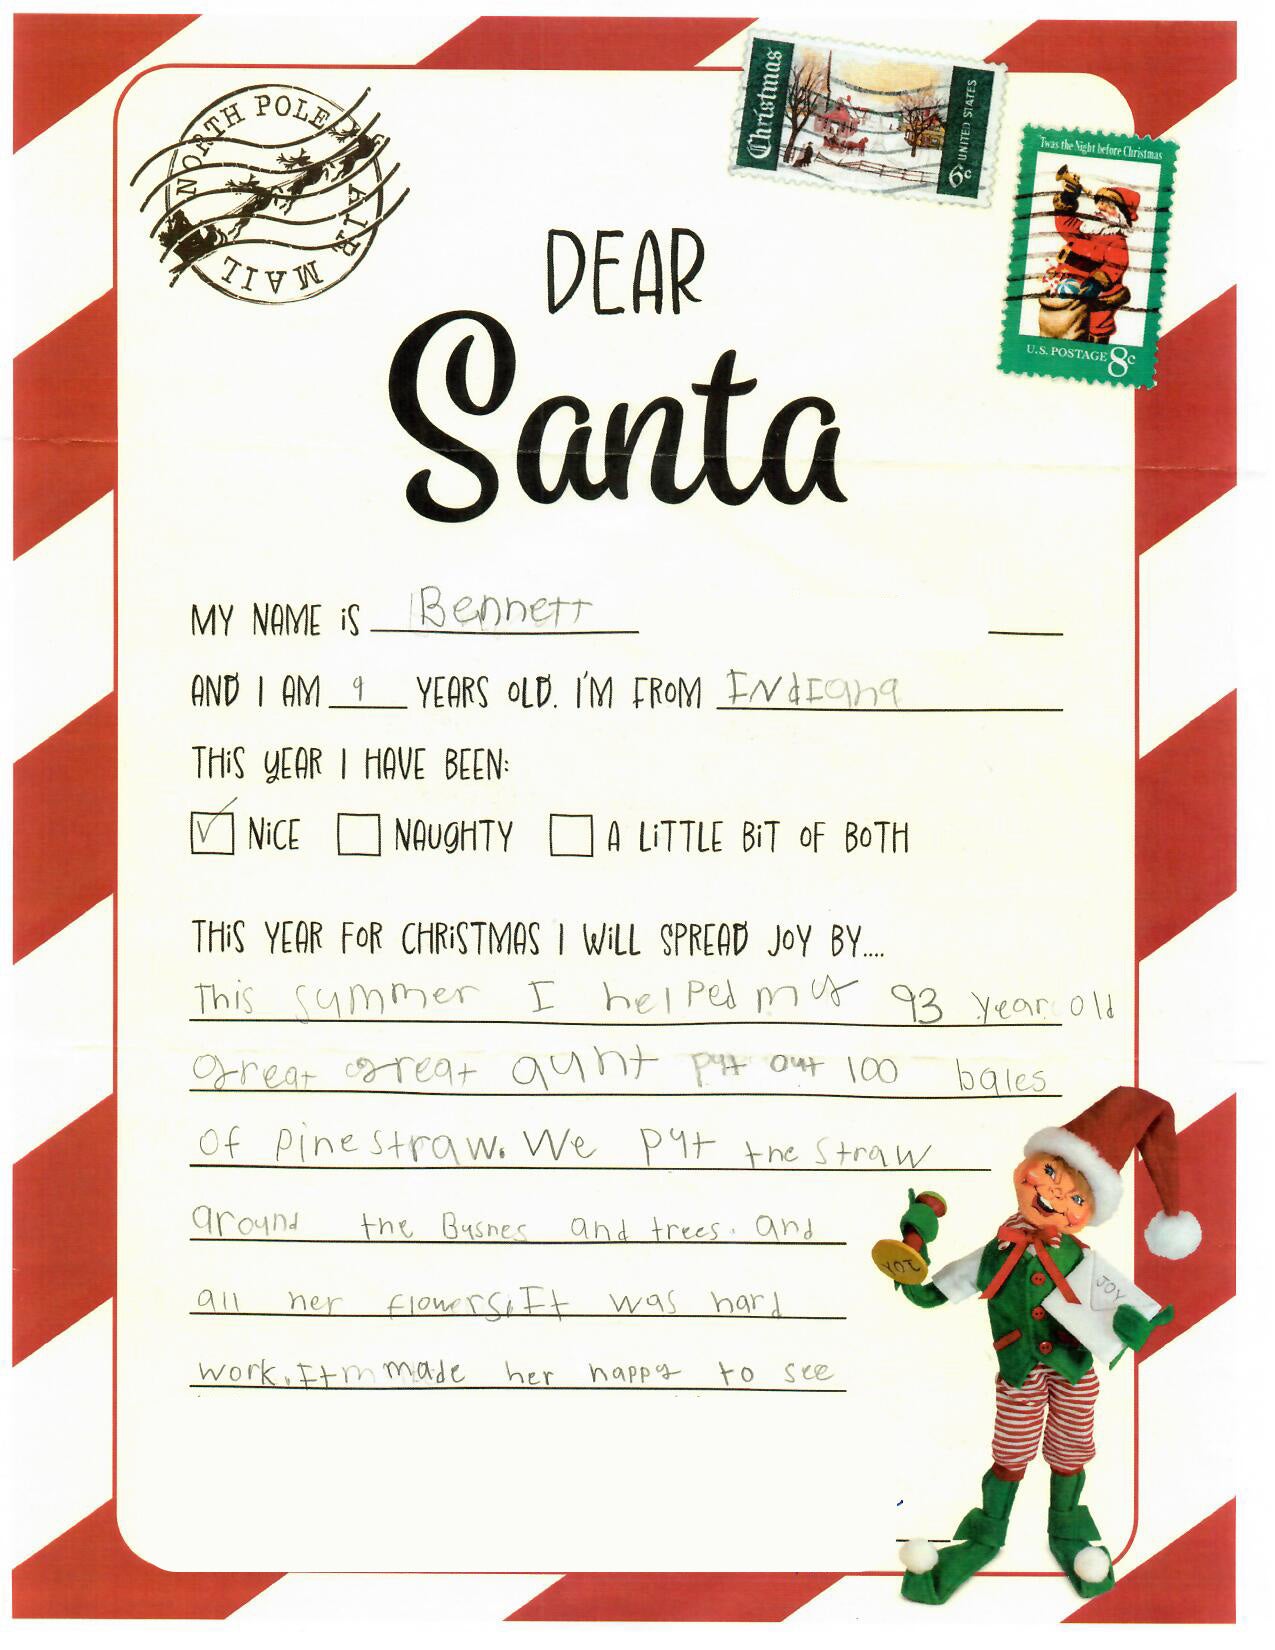 NORTH POLE
AIR MAIL
Christmas
UNITED STATES
6c
'Twas the Night before Christmas
U.S. POSTAGE 8c
DEAR
Santa
MY NAME iS Bennett
AND I AM 9 YEARS OLD. I'M FROM INdIana
THiS YEAR I HAVE BEEN:
✓ NiCE NAUGHTY A LiTTLE BiT OF BOTH
THiS YEAR FOR CHRiSTMAS I WiLL SPREAD JOY BY....
This summer I helped my 93 year old
great great aunt put out 100 bales
of pine straw. We put the straw
around the Bushes and trees. and
all her flowers, It was hard
work. It m made her happy to see
JOY
JOY